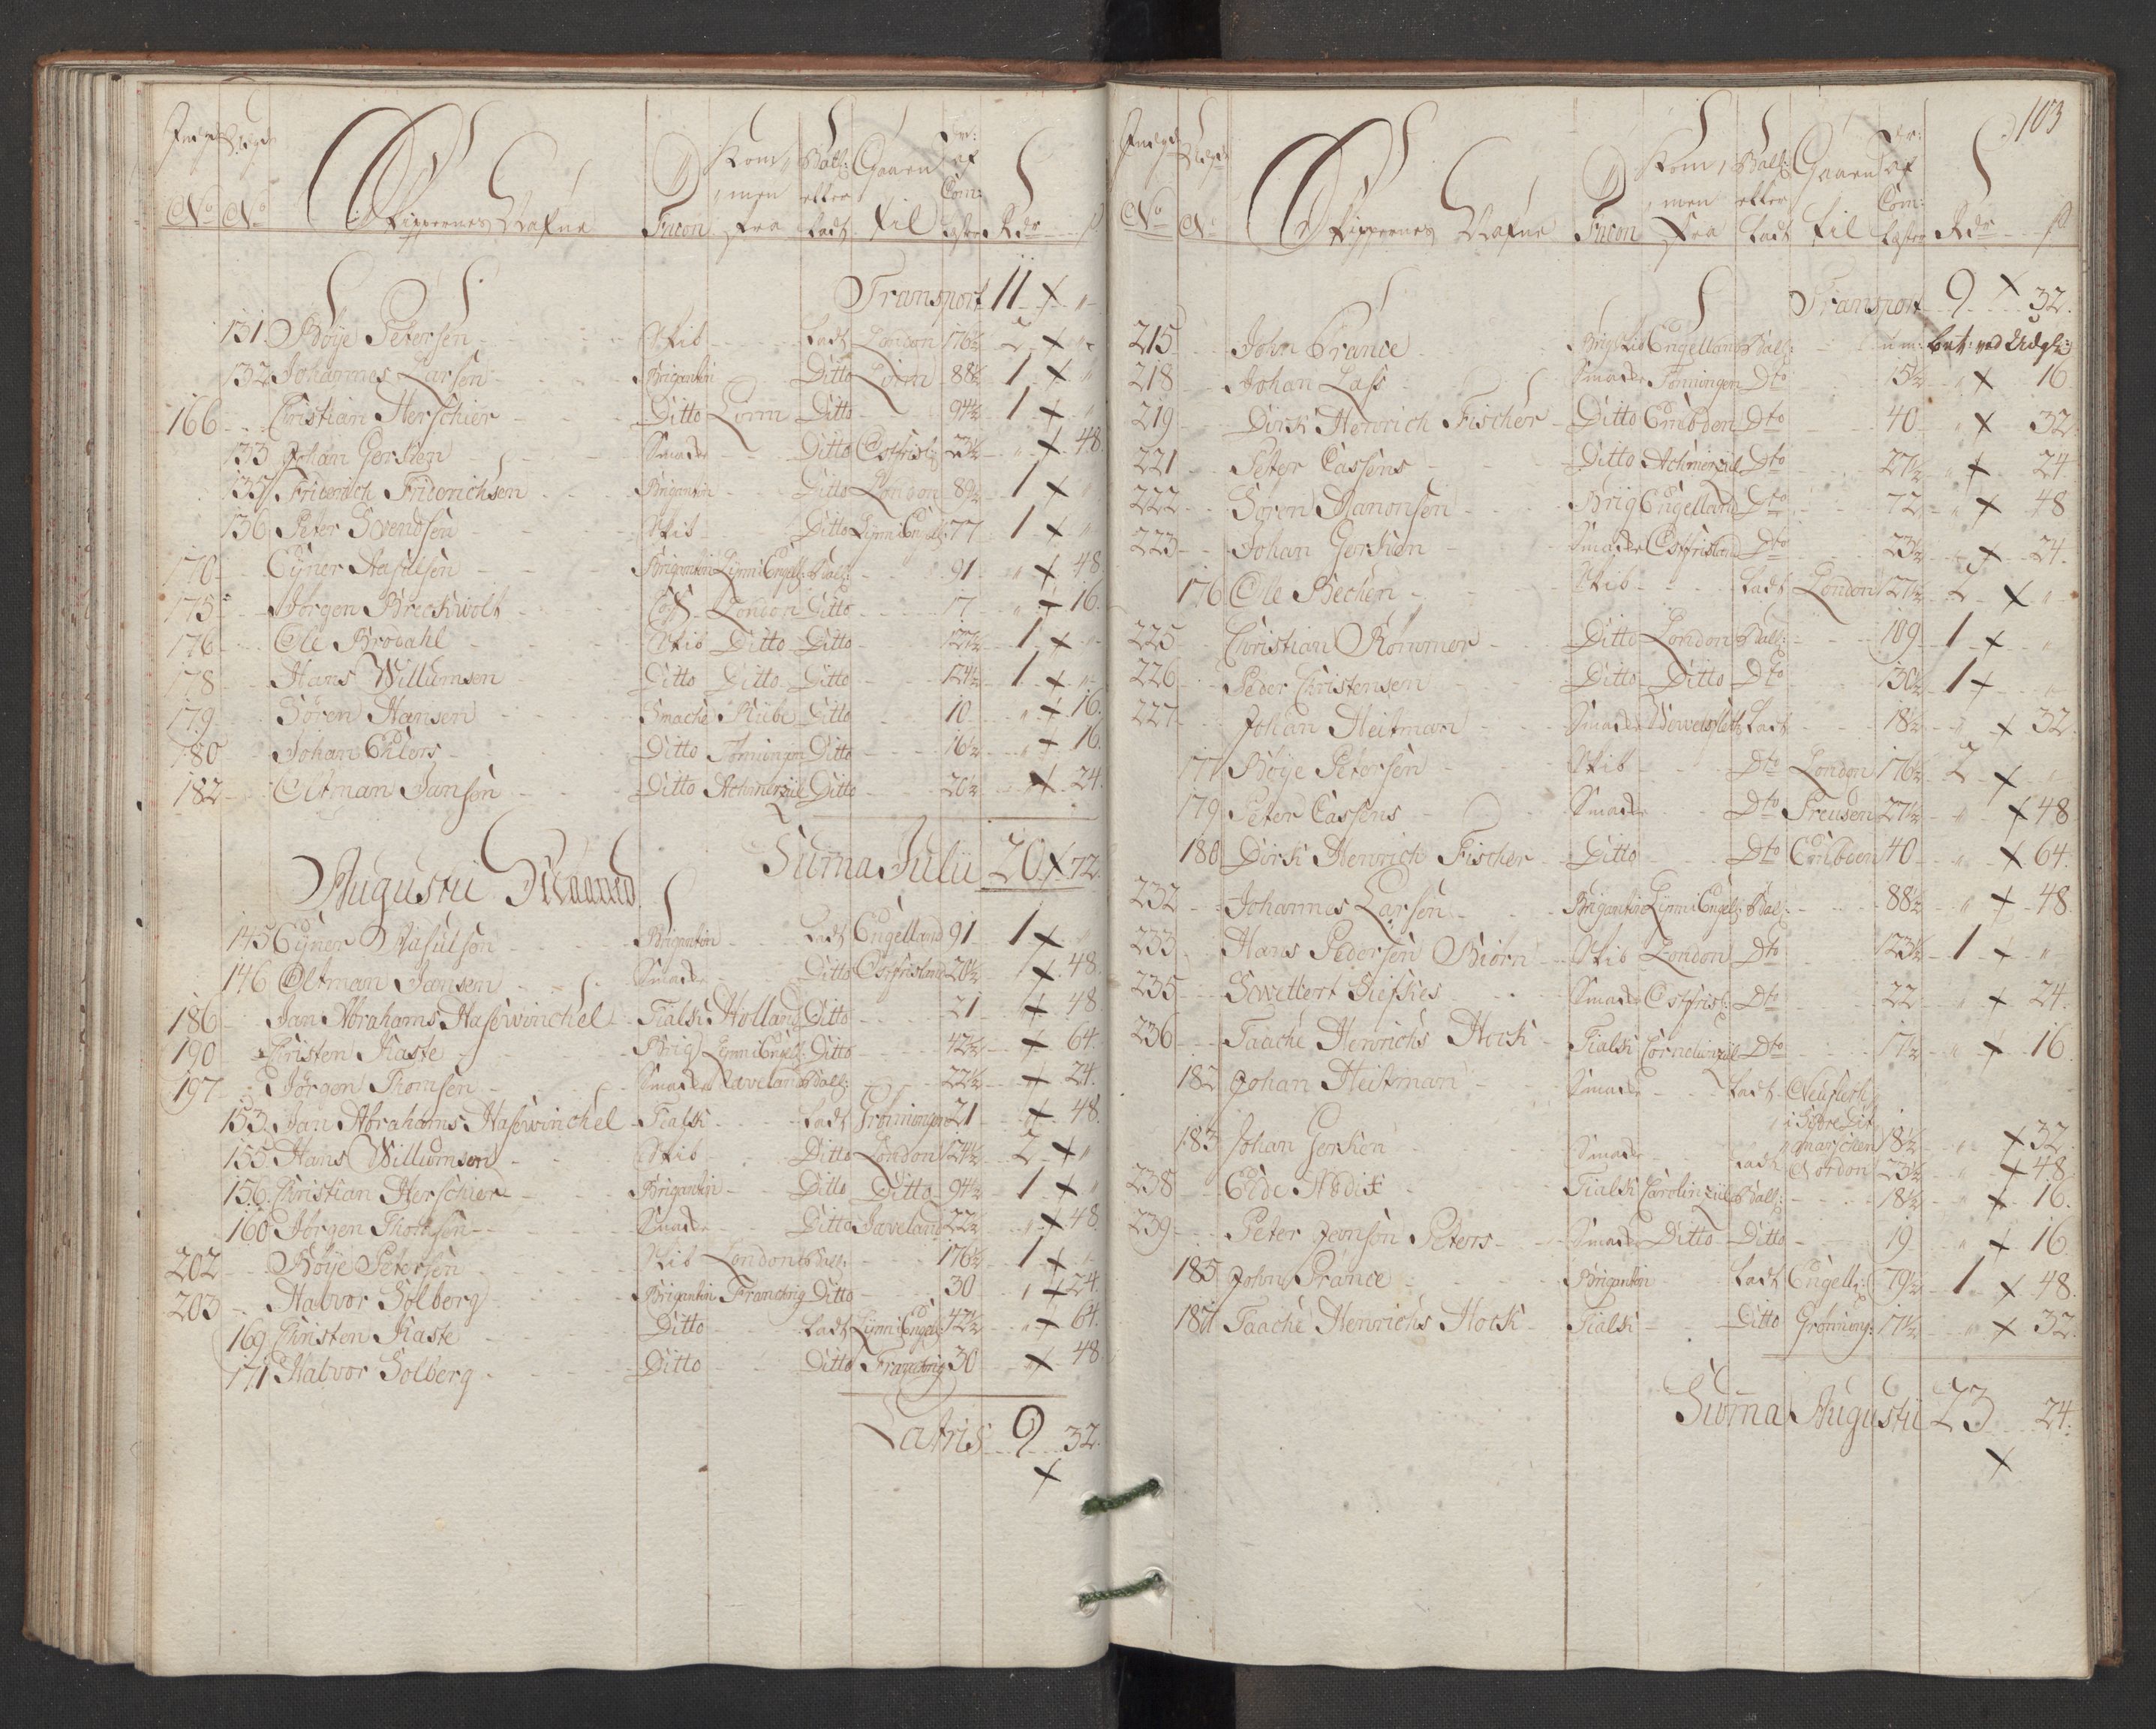 Indgde Udgde
No No Skippernes Nafne Facon Kommen fra Ball: eller Ladt Gaaen til Dr: af Com: Læster Rdr ß
Transport 11 "
131 Bøye Petersen Skib Ladt London 176½ 2 "
132 Johannes Larsen Brigantin Ditto Linn 88½ 1 "
166 Christian Herschier Ditto Linn Ditto 94½ 1 "
133 Johan Gerken Smacke Ditto Ostfrisl: 23½ " 48
135 Friderich Friderichsen Brigantin Ditto London 89½ 1 "
136 Peter Svendsen Skib Ditto Lynn i Engell: 77 1 "
170 Eyner Aasulsen Brigantin Lynn i Engell: Ball: 91 " 48
175 Jørgen Breckwolt Coff London Ditto 17 " 16.
176 Ole Brodahl Skib Ditto Ditto 127½ 1 "
178 Hans Willumsen Ditto Ditto Ditto 124½ 1 "
179 Søren Hansen Smacke Riibe Ditto 10 " 16.
180 Johan Ehlers Ditto Tønningen Ditto 16½ " 16.
182 Oltman Jansen Ditto Achmerziel Ditto 26½ 24.
Suma Julii 20 72.
Augustii Maaned
145 Eyner Aasulsen Brigantin Ladt Engelland 91 1 "
146 Oltman Jansen Smacke Ditto Ostfrisland 26½ " 48.
186 Jan Abrahams Hasewinckel Tialk Holland Ditto 21 " 48
190 Christen Kaste Brig Lynn i Engell: Ditto 42½ 64.
197 Jørgen Thomsen Smacke Javeland Ball: 22½ 24.
153 Jan Abrahams Hasewinckel Tialk Ladt Grønningen 21 " 48.
155 Hans Willumsen Skib Ditto London 124½ 2 "
156 Christian Herschier Brigantin Ditto Ditto 94½ 1 "
160 Jørgen Thomsen Smacke Ditto Javeland 22½ " 48.
202 Bøye Petersen Skib London Ball: 176½ 1 "
203 Halvor Solberg Brigantin Ditto 30 " 24.
169 Christen Kaste Ditto Ladt Lynn i Engell: 42½ " 64.
171 Halvor Solberg Ditto Ditto 30 " 48
Latris 9 32.
103
Indgde Udgde
No No Skippernes Nafne Facon Kommen fra Ball: eller Ladt Gaaen til Dr: af Com: Læster Rdr ß
Transport 9 32.
215 John France Brigskib Engelland Ball: bet: ved Udgl:
218 Johan Lass Smacke Tønningen Dto 15½ " 16
219 Dirk Henrich Fischer Ditto Embden Dto 40 " 32
221 Peter Cassens Ditto Achmerziel Dto 27½ " 24.
222 Søren Aanonsen Brig Engelland Dto 72 " 48
223 Johan Gerken Smacke Ostfrisland Dto 23½ " 24.
176 Ole Becken Skib Ladt London 127½ 2 "
225 Christian Rømmer Ditto London Ball: 109 1 "
226 Peder Christensen Ditto Ditto Dto 130½ 1 "
227 Johan Heitman Smacke Ladt 18½ " 32.
177 Bøye Petersen Skib Dto London 176½ 2 "
179 Peter Cassens Smacke Dto Preusen 27½ " 48
180 Dirk Henrich Fischer Ditto Dto Embden 40 " 64.
232 Johannes Larsen Brigantin Lynn i Engel: Bal: 88½ " 48.
233 Hans Pedersen Biørn Skib London Dto 123½ 1 "
235 Swittert Siefkes Smacke Ostfrisl: Dto 22 " 24.
236 Taacke Henrichs Hock Tialk Corneliinziel Dto 17½ " 16.
182 Johan Heitman Smacke Ladt
marschen 18½ " 32.
183 Johan Gerken Smacke Ladt Norden 23½ " 48.
238 Eide Tialk Carolinziel Ball: 18½ " 16.
239 Peter Jansen Peters Smacke Ditto Ditto 19 " 16
185 John France Brigantin Ladt Engell: 79½ 1 48.
187 Taacke Henrichs Hock Tialk Ditto Grønning: 17½ " 32.
Suma Augustii 23 24.